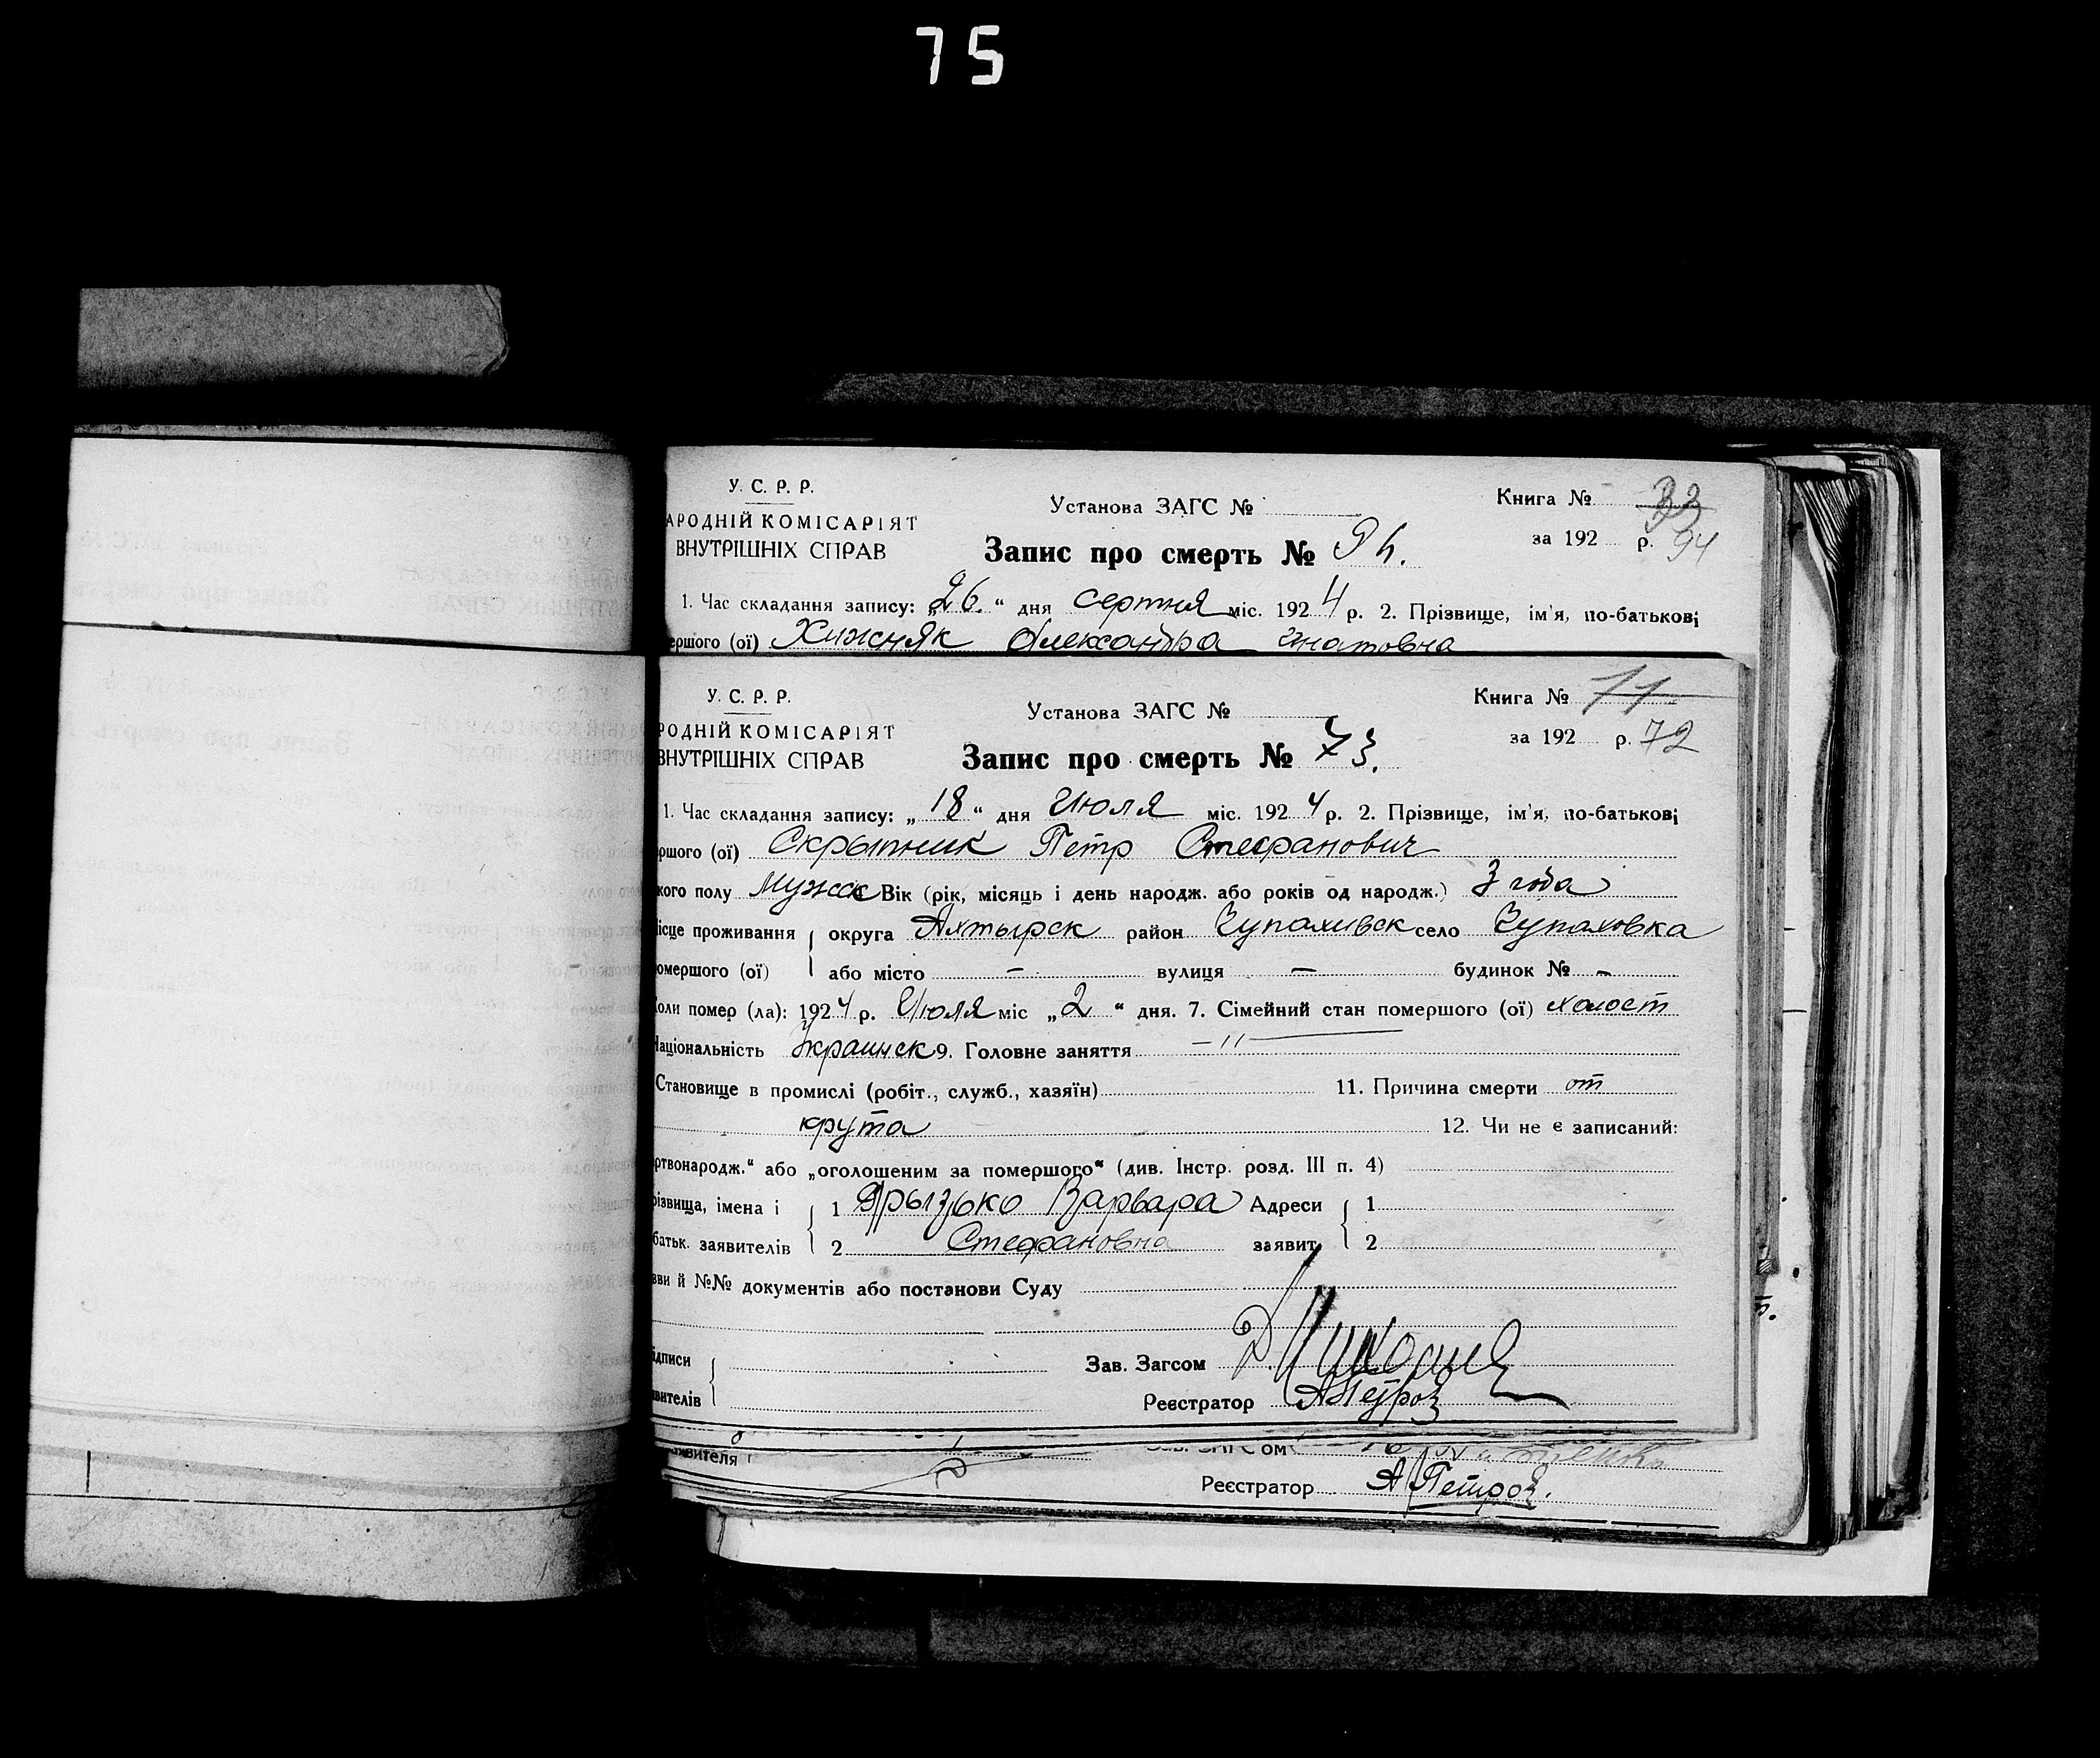 75
У. С. Р. Р.
АРОДНІЙ КОМІСАРІЯТ
ВНУТРІШНІХ СПРАВ
Установа ЗАГС №
Запис про смерть № 94.
Книга № 32
за 192 р. 94
1. Час складання запису: „26.“ дня серпня міс. 1924 р. 2. Прізвище, ім'я, по-батькові
ершого (ої) Хижняк Александра Игнатовна
У. С. Р. Р.
РОДНІЙ КОМІСАРІЯТ
ВНУТРІШНІХ СПРАВ
Установа ЗАГС №
Запис про смерть № 73.
Книга № 71
за 192 р. 72
1. Час складання запису: „18“ дня Июля міс. 1924 р. 2. Прізвище, ім'я, по-батькові
ршого (ої) Скрыпник Петр Стефанович
кого полу Мужск Вік (рік, місяць і день народж. або років од народж.) 3 года
ісце проживання округа Ахтырск район Чупаливск село Чупаховка
омершого (ої) або місто – вулиця – будинок № –
оли помер (ла): 1924 р. Июля міс „2“ дня. 7. Сімейний стан помершого (ої) холост
аціональність Украинск 9. Головне заняття – 〃 –
Становище в промислі (робіт., служб., хазяїн) 11. Причина смерти от
крупа 12. Чи не є записаний:
ртвонародж.“ або „оголошеним за помершого“ (див. Інстр. розд. III п. 4)
різвища, імена і 1 Варвара Адреси 1
батьк. заявителів 2 Стефановна заявит. 2
зви й №№ документів або постанови Суду
ідписи Зав. Загсом
вителів Реєстратор АПетров
заявителя Зав. ЗАГСом
Реєстратор А Петров.